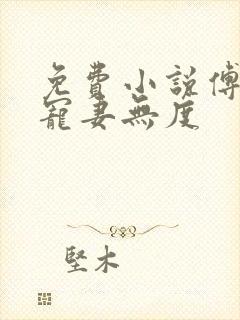 免費小說傅
寵妻無度
堅木